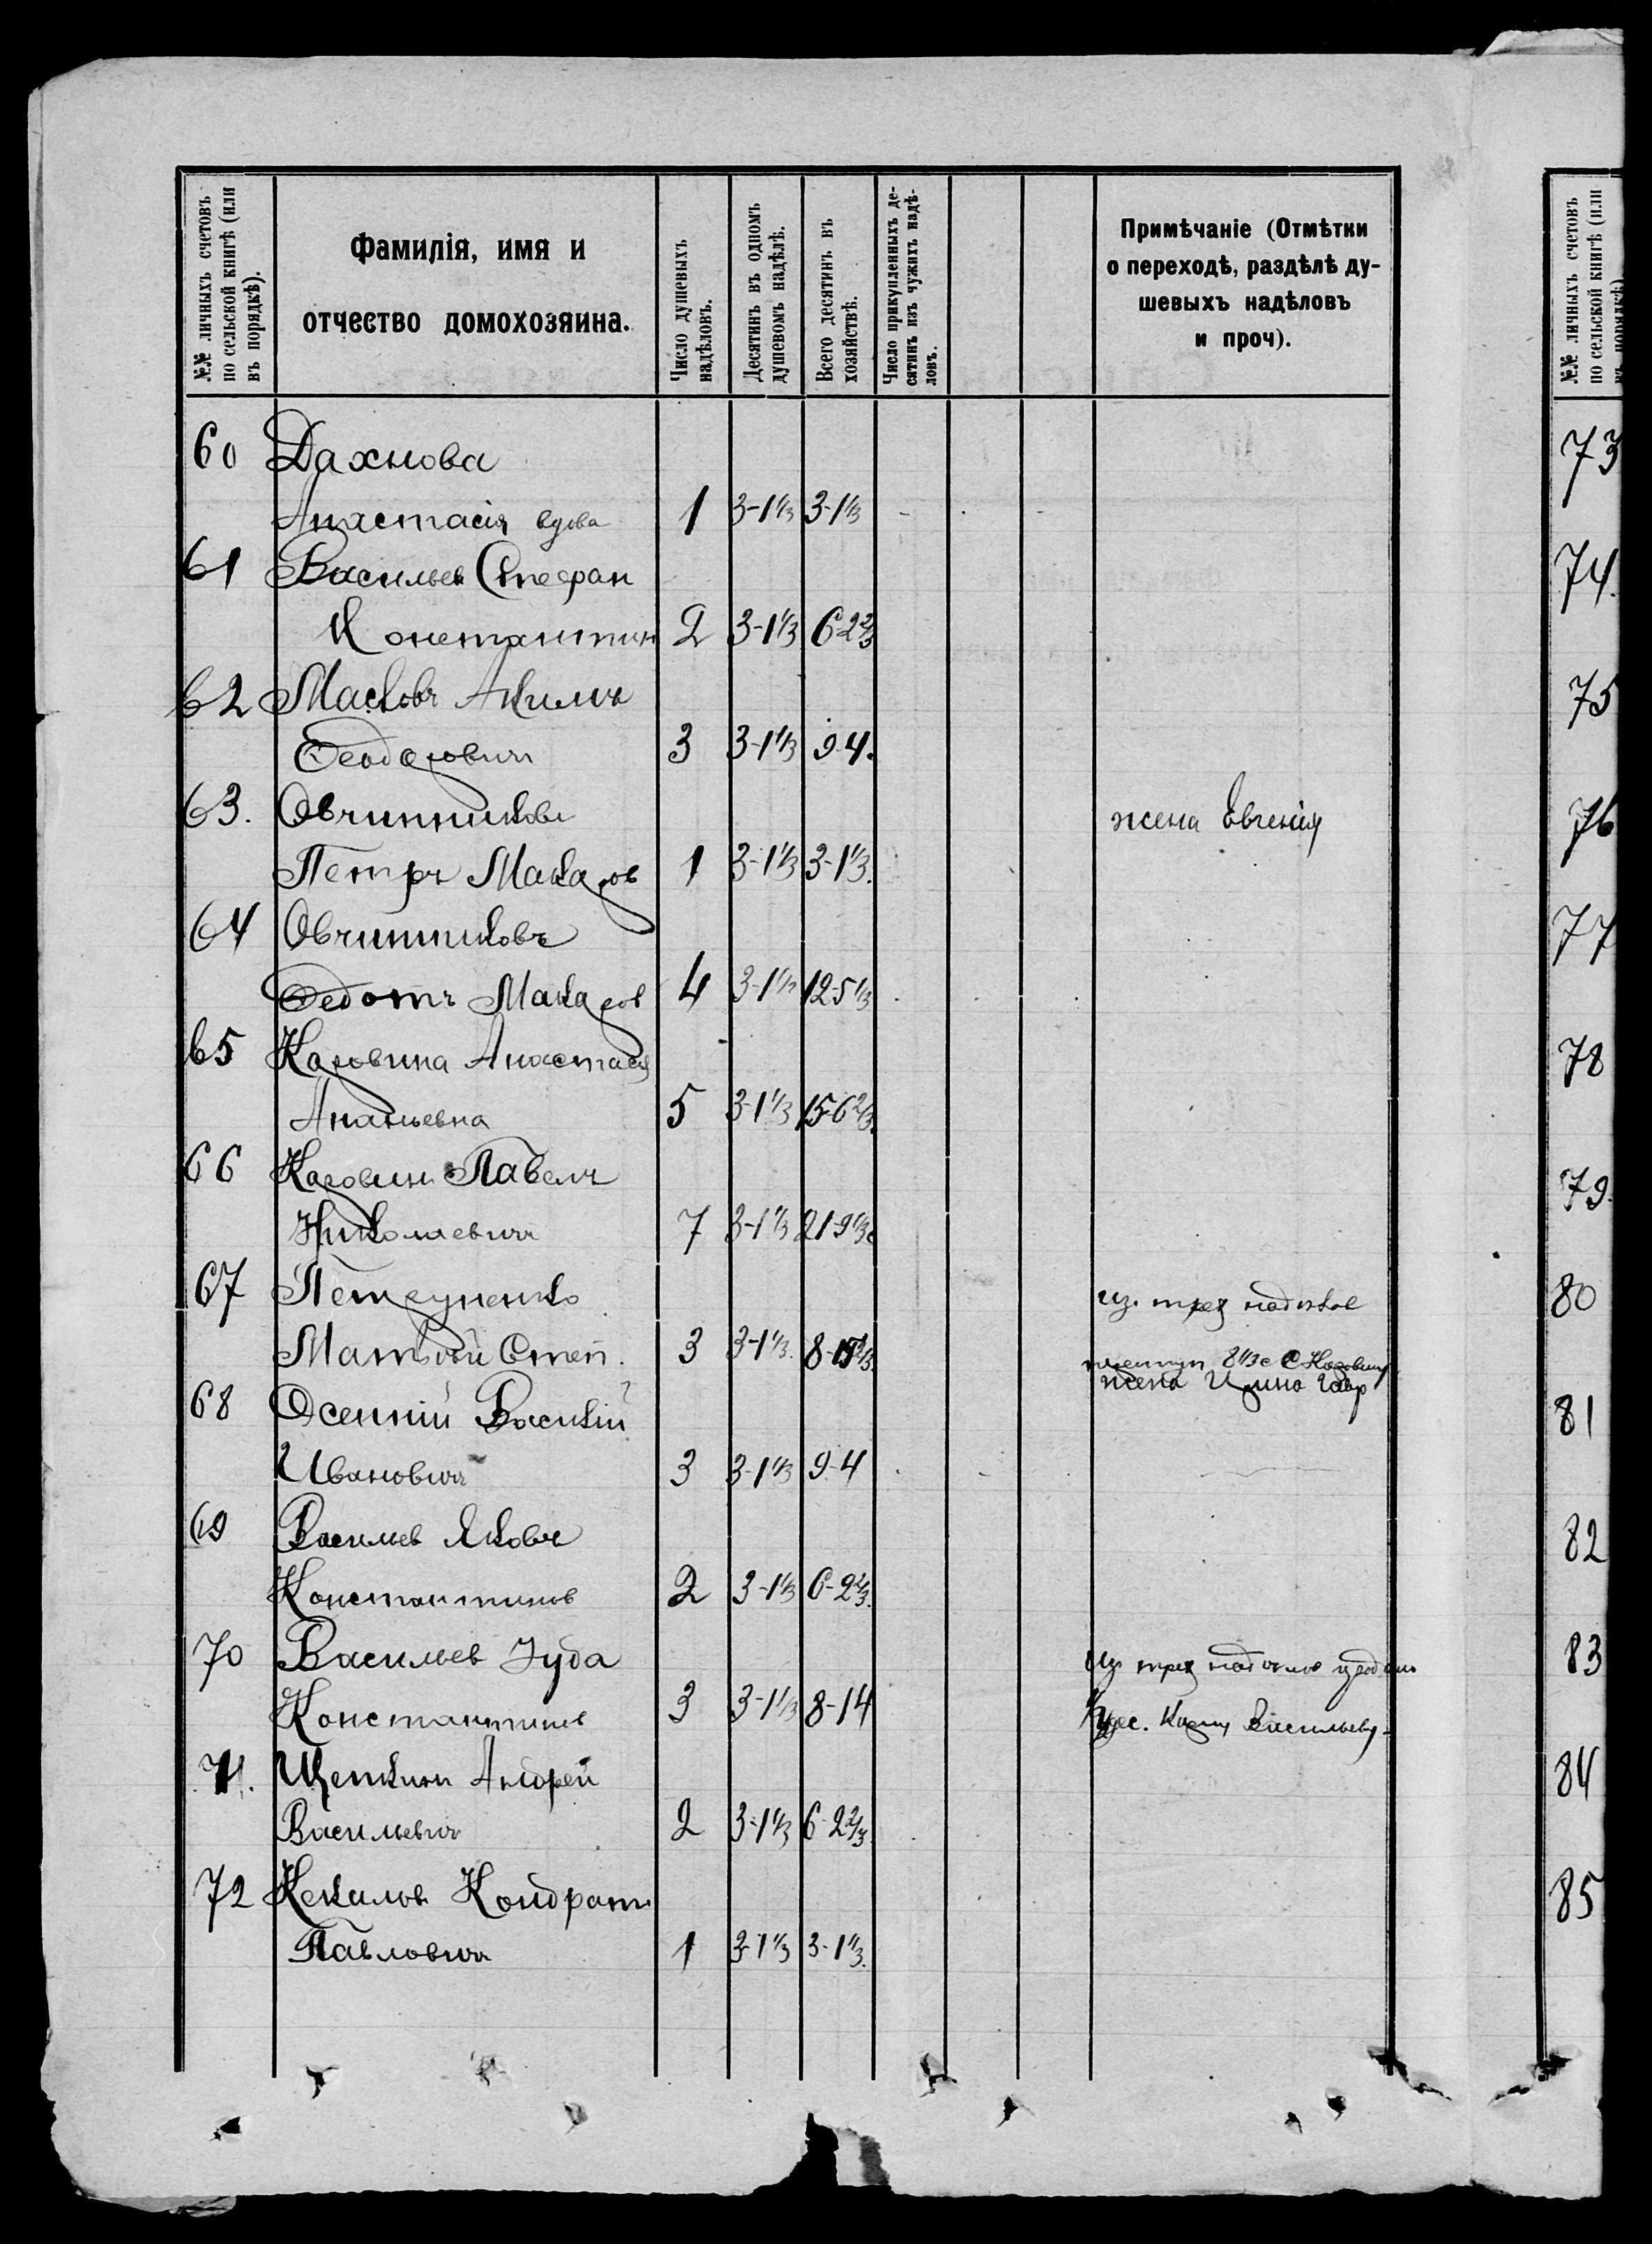 №№ личныхъ счетовъ по сельской книгѣ (или въ порядкѣ).
Фамилія, имя и отчество домохозяина.
Число душевыхъ надѣловъ.
Десятинъ въ одномъ душевомъ надѣлѣ.
Всего десятинъ въ хозяйствѣ.
Число прикупленныхъ десятинъ изъ чужихъ надѣловъ.
Примѣчаніе (Отмѣтки
о переходѣ, раздѣлѣ ду-
шевыхъ надѣловъ
и проч).
60 Дахнова
Анастасія вдова 1 3-1 1/3 3-1 1/3
61 Васильев Стефан
Константин 2 3-1 1/3 6-2 2/3
62 Масковъ Акимъ
Феодорович 3 3-1 1/3 9-4.
63. Овчинников жена Евгенія
Петръ Макаров 1 3-1 1/3 3-1 1/3.
64 Овчинниковъ
Федотъ Макаров 4 3-1 1/3 12-5 1/3
65 Каровина Анастасія
Ананьевна 5 3-1 1/3 15-6 2/3.
66 Каровин Павелъ
Николаевичъ 7 3-1 1/3 21-9 1/3
67 Петруненко из трех
Матвѣй Степ. 3 3-1 1/3. 8-
жена Ирина Гавр
68 Осенній Василій
Ивановичъ 3 3-1 1/3 9-4
69 Васильев Яковъ
Константинов 2 3-1 1/3 6-2 2/3.
70 Васильев Іуда из трех
Константинов 3 3-1 1/3 8-14 Васильеву-
71. Щеткин Андрей
Васильевичъ 2 3-1 1/3 6-2 2/3
72 Кекалов Кондратъ
Павловичъ 1 3-1 1/3 3-1 1/3.
№№ личныхъ счетовъ по сельской книгѣ (или въ порядкѣ)
73
74.
75
76
77
78
79.
80
81
82
83
84
85